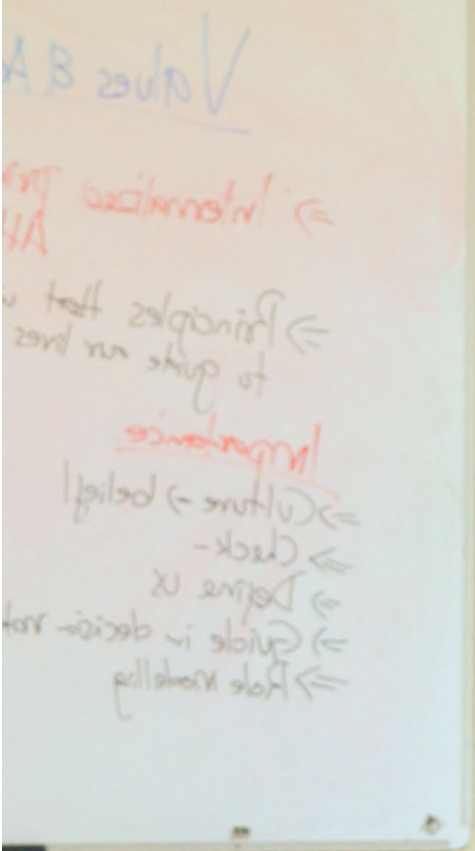 Values & A
⇒ Internalized pr
Att
⇒ Principles that
to guide our lives
Importance
⇒ Culture → belief
⇒ Check -
⇒ Define us
⇒ Guide in decision
⇒ Role Modelling